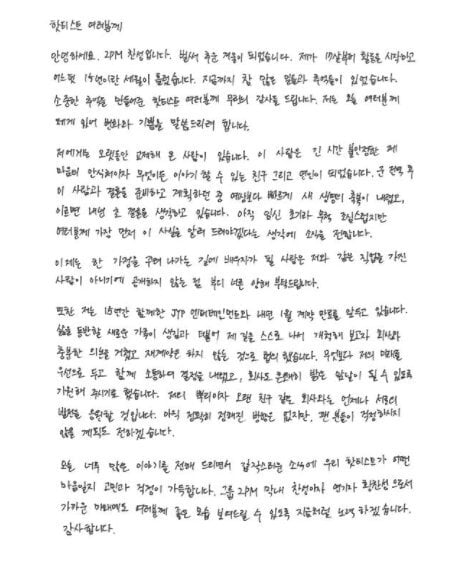 핫티스트 여러분께
안녕하세요. 2PM 찬성입니다. 벌써 추운 겨울이 되었습니다. 제가 17살부터 활동을 시작하고
어느덧 15년이란 세월이 흘렀습니다. 지금까지 참 많은 일들과 추억들이 있었습니다.
소중한 추억을 만들어준 핫티스트 여러분께 무한히 감사를 드립니다. 저는 오늘 여러분께
제게 있어 변화와 기쁨을 말씀드리려 합니다.
저에게는 오랫동안 교제해 온 사람이 있습니다. 이 사람은 긴 시간 불안정한 제
마음의 안식처이자 무엇이든 이야기 할 수 있는 친구 그리고 연인이 되었습니다. 군 전역 후
이 사람과 결혼을 준비하고 계획하던 중 예상보다 빠르게 새 생명의 축복이 내렸고,
이르면 내년 초 결혼을 생각하고 있습니다. 아직 임신 초기라 무척 조심스럽지만
여러분께 가장 먼저 이 사실을 알려 드려야겠다는 생각에 소식을 전합니다.
이제는 한 가정을 꾸려 나가는 길에 배우자가 될 사람은 저와 같은 직업을 가진
사람이 아니기에 공개하지 않는 점 부디 너른 양해 부탁드립니다.
또한 저는 15년간 함께한 JYP 엔터테인먼트와 내년 1월 계약 만료를 앞두고 있습니다.
삶을 동반할 새로운 가족이 생김과 더불어 제 길을 스스로 나서 개척해 보고자 회사와
충분한 의논을 거쳤고 재계약은 하지 않는 것으로 협의 했습니다. 무엇보다 저의 미래를
우선으로 두고 함께 소통하며 결정을 내렸고, 회사도 흔쾌히 밝은 앞날이 될 수 있도록
기원해 주시기로 했습니다. 저의 뿌리이자 오랜 친구 같은 회사와는 언제나 서로의
발전을 응원할 것입니다. 아직 정확히 정해진 방향은 없지만, 팬 분들이 걱정하시지
않을 계획도 전하겠습니다.
오늘 너무 많은 이야기를 전해 드리면서 갑작스러운 소식에 우리 핫티스트가 어떤
마음일지 고민과 걱정이 가득합니다. 그룹 2PM 막내 찬성이자 연기자 황찬성으로서
가까운 미래에도 여러분께 좋은 모습 보여드릴 수 있도록 지금처럼 노력하겠습니다.
감사합니다.